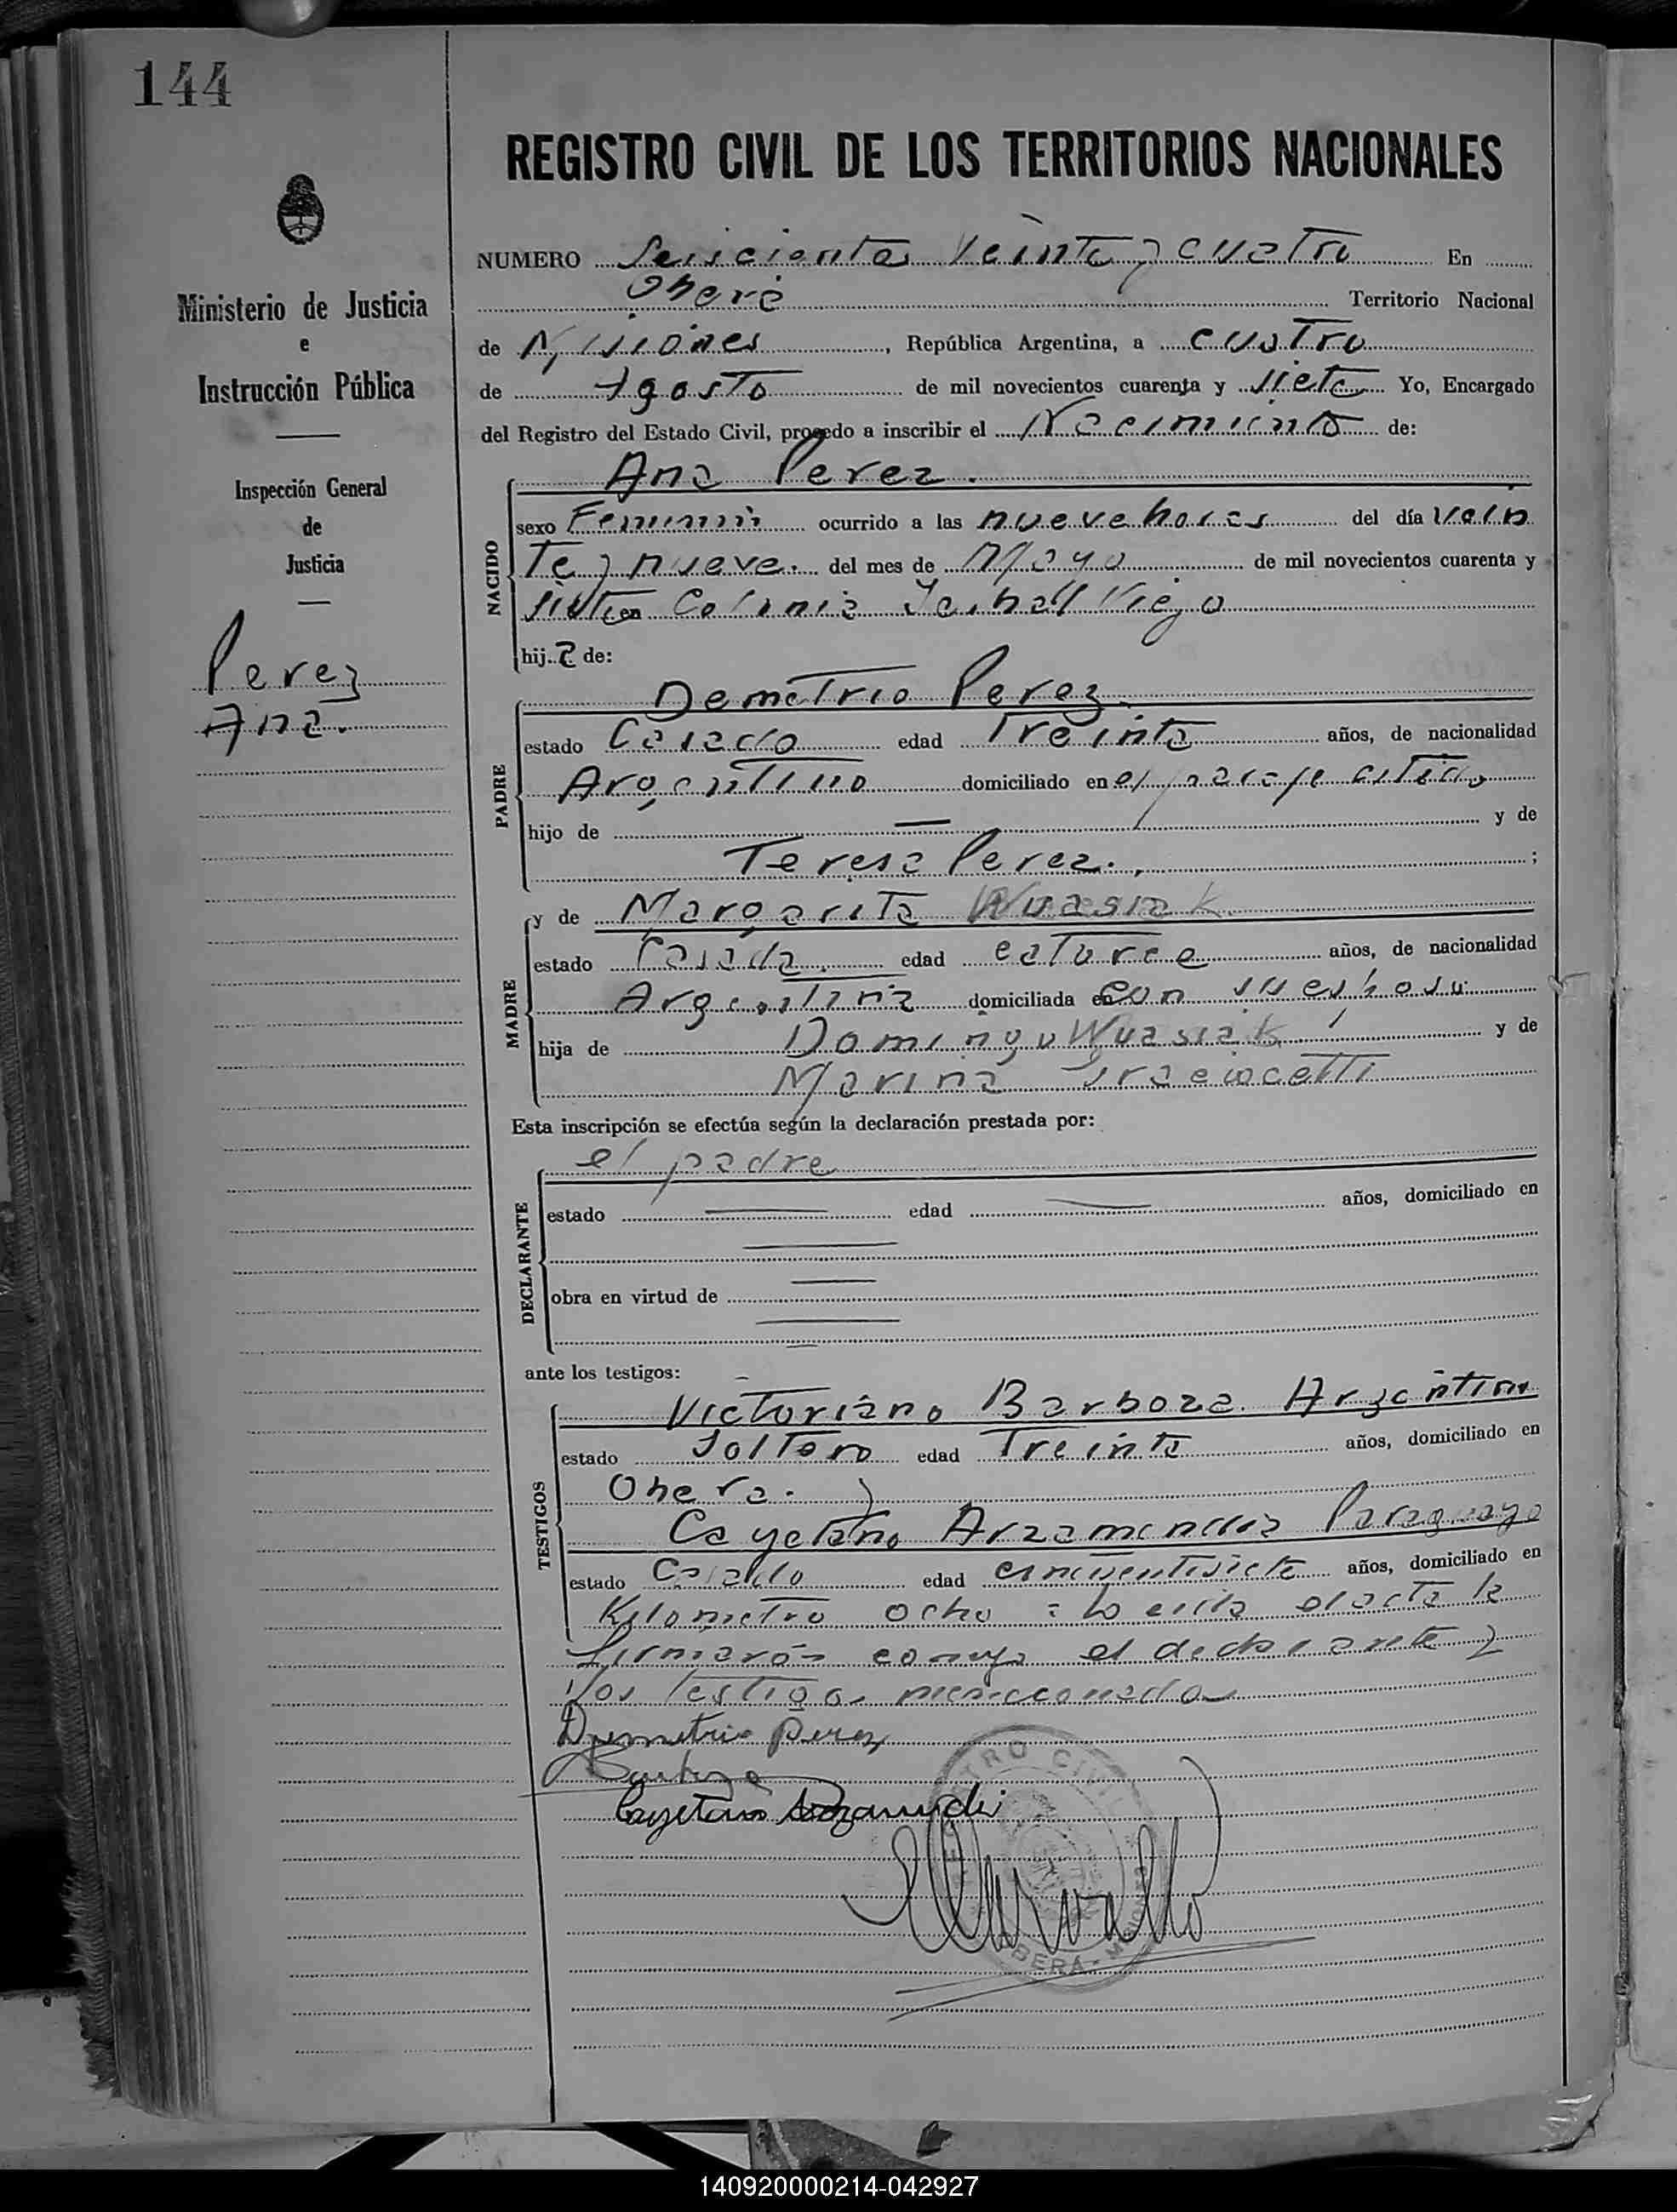 144
REGISTRO CIVIL DE LOS TERRITORIOS NACIONALES
Ministerio de Justicia
e
Instrucción Pública
Inspección General
de
Justicia
Perez
Ana.
NUMERO Seiscientos Veinte y cuatro En
Oberá Territorio Nacional
de Misiones, República Argentina, a cuatro
de Agosto de mil novecientos cuarenta y siete Yo, Encargado
del Registro del Estado Civil, procedo a inscribir el Nacimiento de:
NACIDO
Ana Perez.
sexo Femenino ocurrido a las nueve horas del día vein
te y nueve. del mes de Mayo de mil novecientos cuarenta y
siete en Colonia Yerbal Viejo
hija de:
PADRE
Demetrio Perez.
estado Casado edad Treinta años, de nacionalidad
Argentino domiciliado en el paraje citado
hijo de — y de
Teresa Perez. ;
MADRE
y de Margarita Wuasiak
estado Casada. edad catorce años, de nacionalidad
Argentina domiciliada en con su esposo
hija de Domingo Wuasiak y de
Marina
Esta inscripción se efectúa según la declaración prestada por:
DECLARANTE
el padre
estado — edad — años, domiciliado en
obra en virtud de —
ante los testigos:
TESTIGOS
Victoriano Barboza. Argentino
estado Soltero edad Treinta años, domiciliado en
Obera. y
Cayetano Arzamendia Paraguayo
estado Casado edad cincuentisiete años, domiciliado en
Kilometro ocho = Leida el acta la
firmarón conmigo el declarante y
los testigos mencionados
Demetrio Perez
Cayetano Arzamendi
REGISTRO CIVIL
OBERA - MISIONES
140920000214-042927